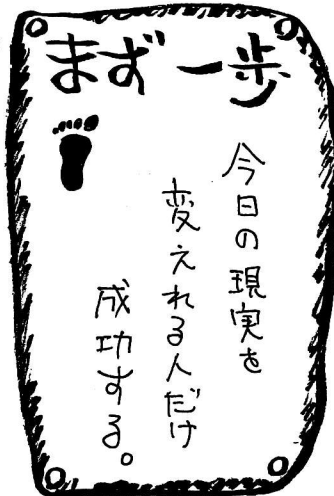 まず一歩
今日の現実を
変えれる人だけ
成功する。